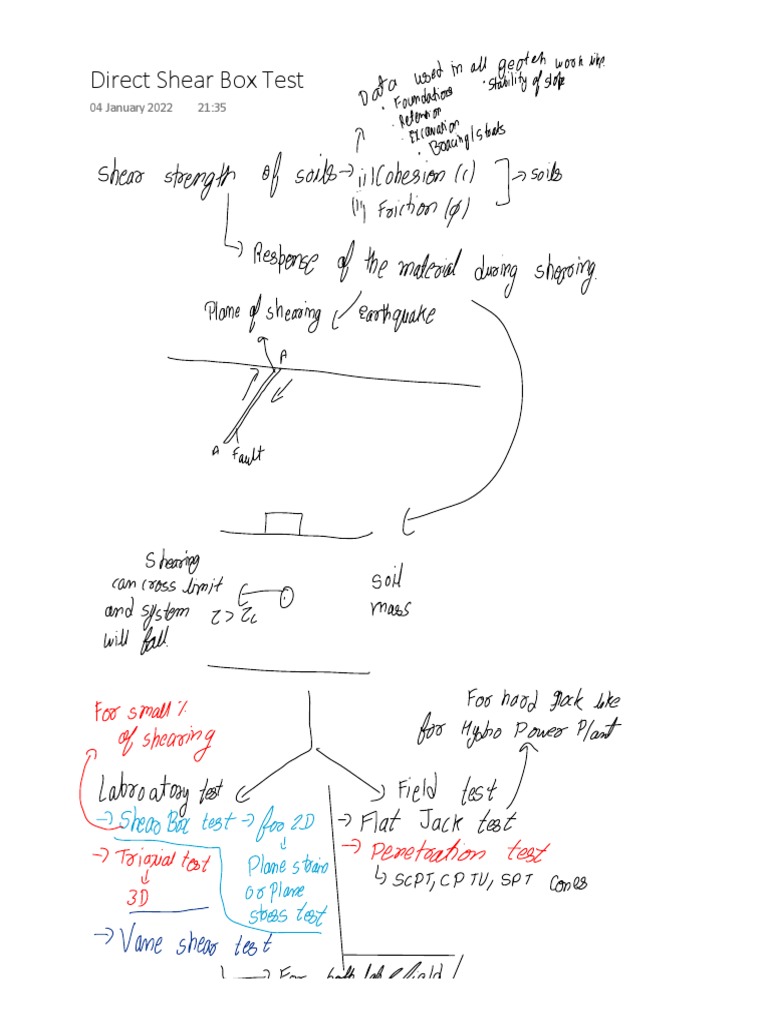 Direct Shear Box Test
04 January 2022 21:35
Data used in all geoteh work like
• Foundations
• Stability of slope
• Retention
• Excavation
• Bracing/struts
Shear strength of soils → (i) Cohesion (c)
(ii) Friction (φ)
→ soils
→ Response of the material during shearing.
Plane of shearing
Earthquake
A
A Fault
Shearing
can cross limit
and system
will fall.
soil
mass
For small %
of shearing
For hard Rock like
for Hydro Power Plant
Labroatory test
Field test
→ Shear Box test → for 2D
→ Flat Jack test
→ Triaxial test
3D
Plane strain
or Plane
stress test
→ Penetration test
↳ SCPT, CPTU, SPT Cones
→ Vane shear test
→ For both lab & field